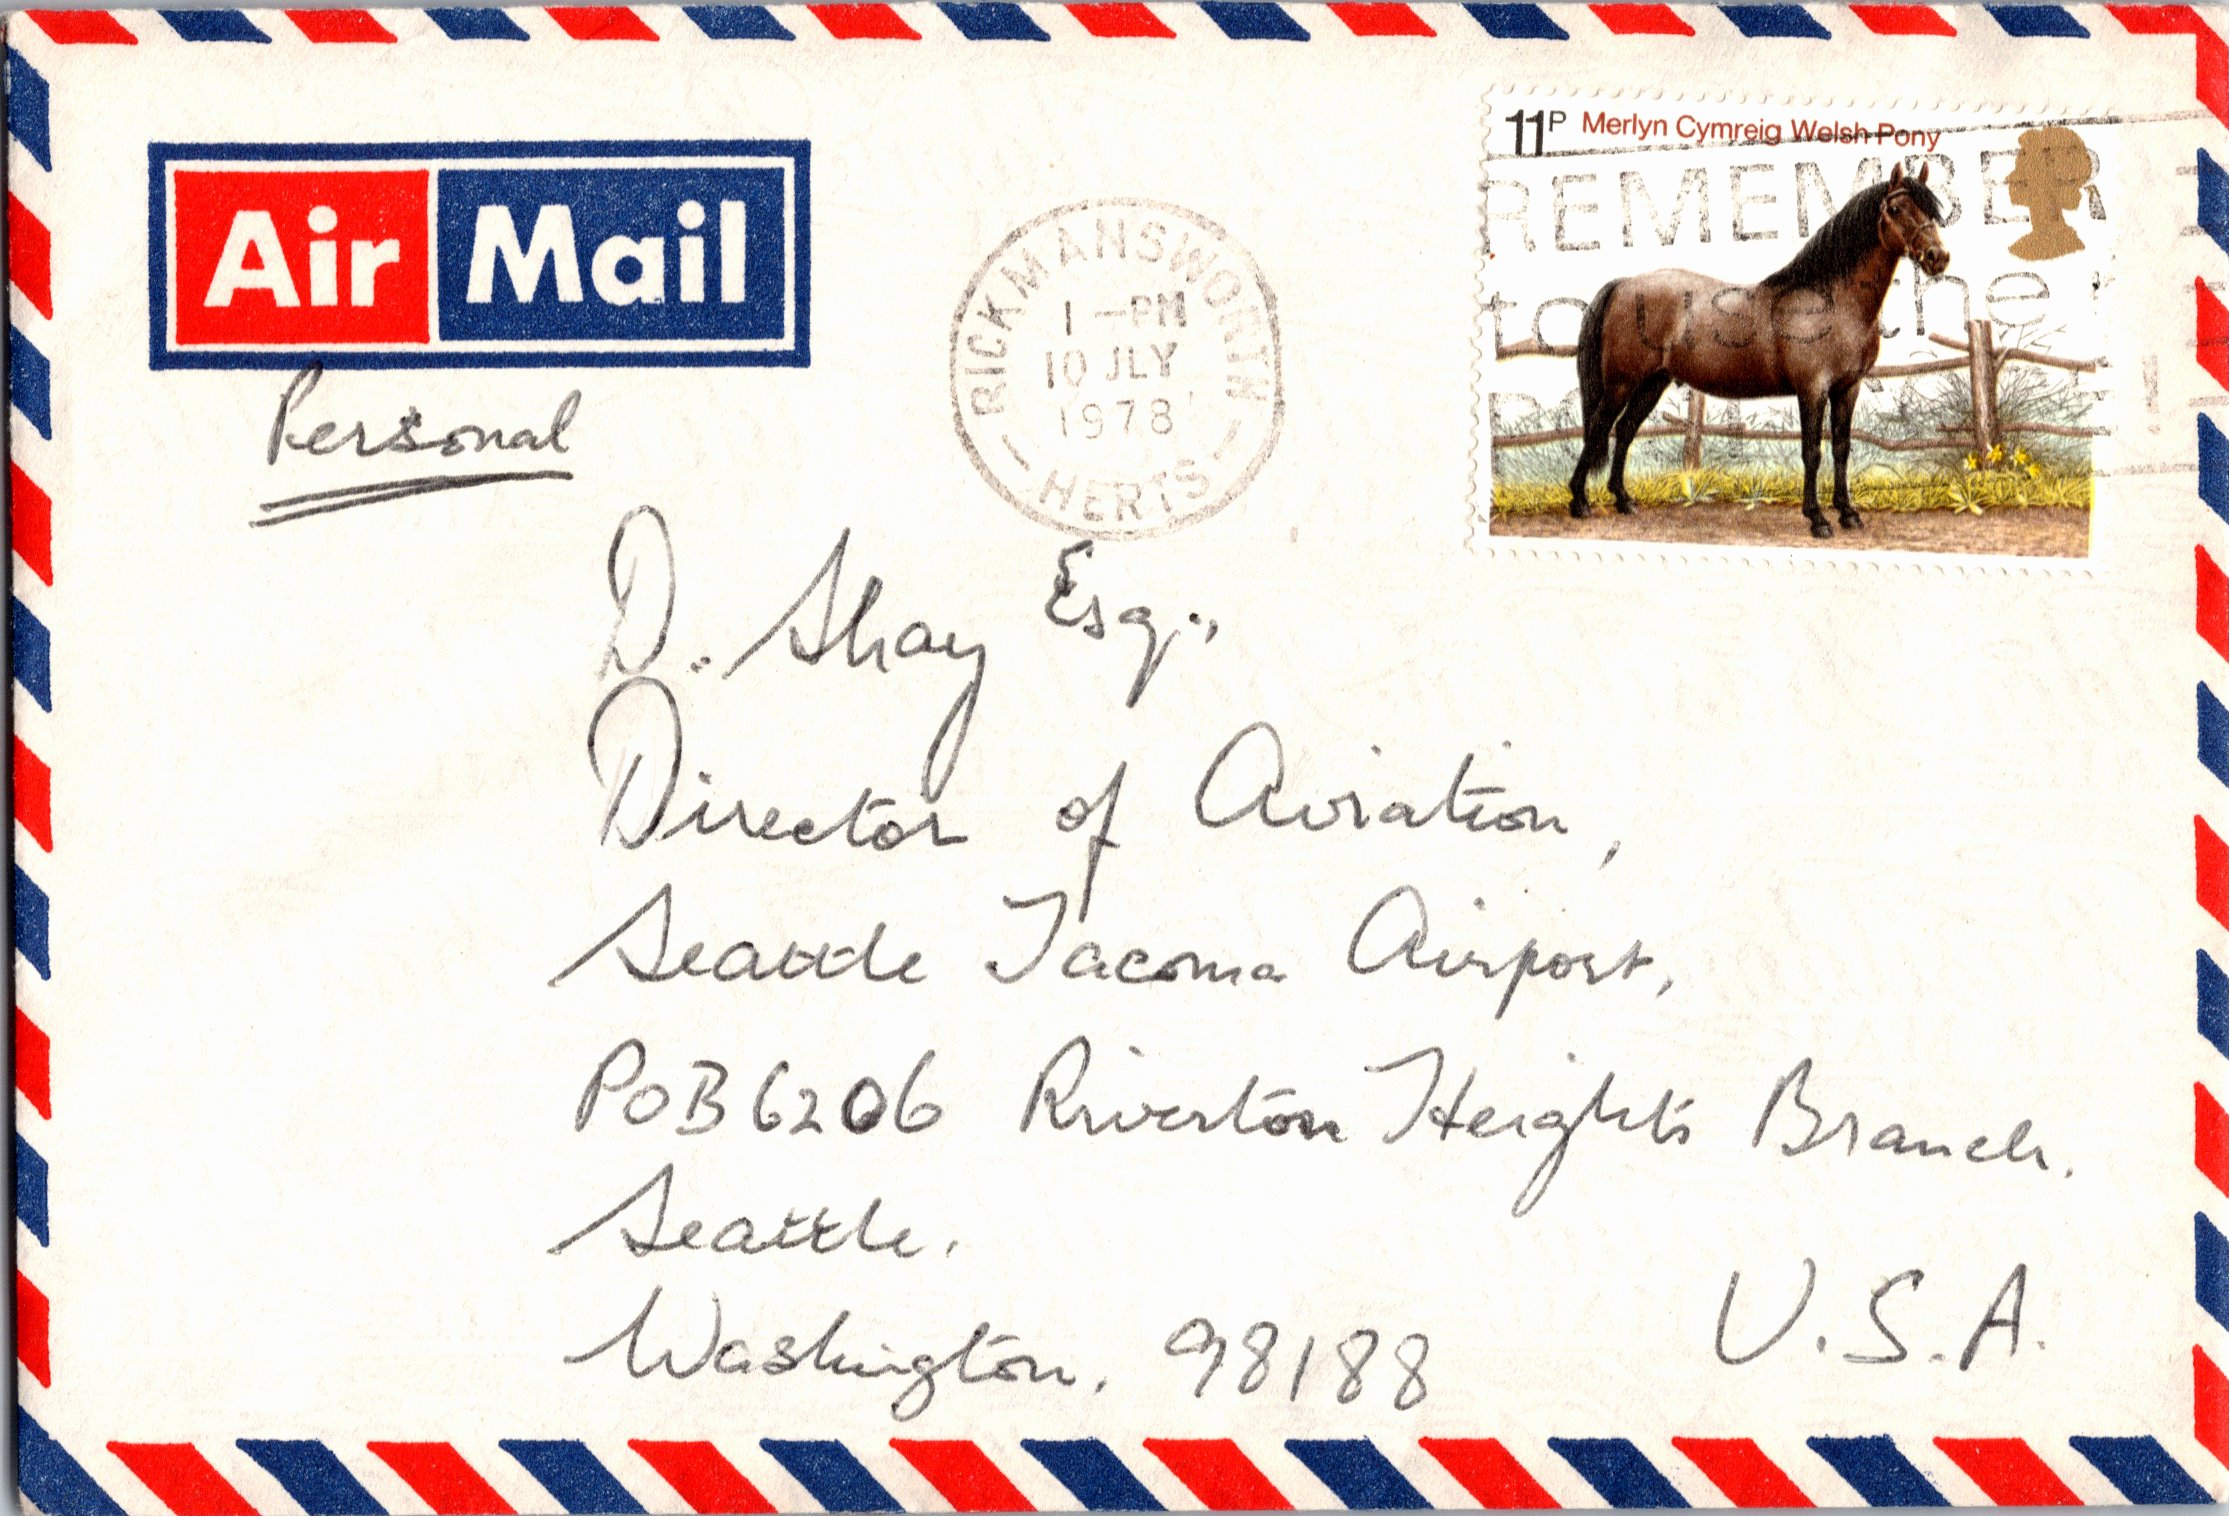 Air Mail
Personal
RICKMANSWORTH
1 - PM
10 JLY
1978
HERTS
11P Merlyn Cymreig Welsh Pony
REMEMBER
to use the
D. Shay Esq.,
Director of Aviation,
Seattle Tacoma Airport,
POB 6206 Riverton Heights Branch.
Seattle.
Washington. 98188
U.S.A.